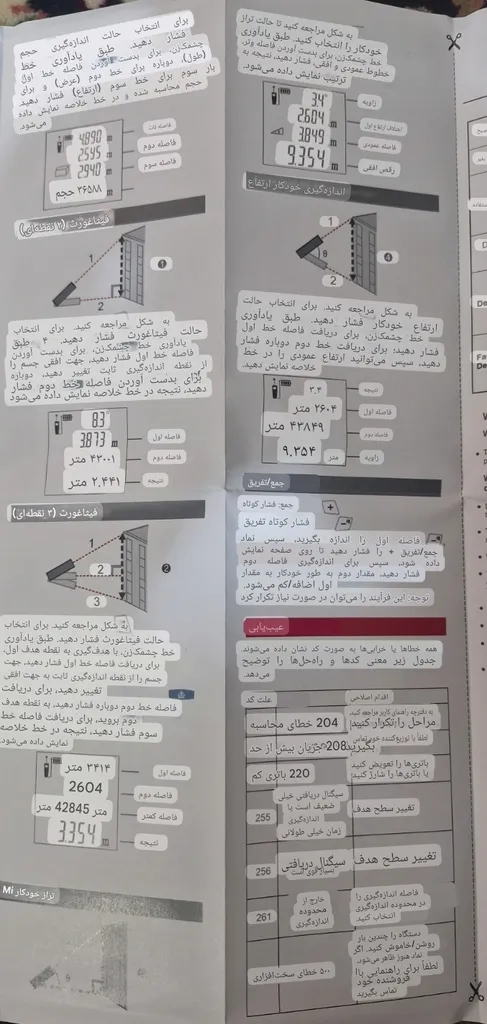 برای انتخاب حالت اندازه‌گیری حجم
فشار دهید. طبق یادآوری خط
چشمک‌زن، برای بدست آوردن فاصله خط اول
(طول)، دوباره برای خط دوم (عرض) و برای
بار سوم برای خط سوم (ارتفاع) فشار دهید.
حجم محاسبه شده و در خط خلاصه نمایش داده
می‌شود.
4.890 m
2.545
2.940
۳۶۵۸۸ حجم
فاصله دوم
فاصله سوم
فیثاغورث (۲ نقطه‌ای)
1
2
❶
به شکل مراجعه کنید. برای انتخاب
حالت فیثاغورث فشار دهید. ۴ طبق
یادآوری خط چشمک‌زن، برای بدست آوردن
فاصله خط اول فشار دهید. جهت افقی جسم را
از نقطه اندازه‌گیری ثابت تغییر دهید، دوباره
برای بدست آوردن فاصله خط دوم فشار
دهید، نتیجه در خط خلاصه نمایش داده می‌شود
8.3°
3.873 m
۴۳۰۰۱ متر
۲.۴۴۱ متر
فاصله اول
فاصله دوم
نتیجه
فیثاغورث (۳ نقطه‌ای)
1
2
3
❷
به شکل مراجعه کنید. برای انتخاب
حالت فیثاغورث فشار دهید. طبق یادآوری
خط چشمک‌زن، با هدف‌گیری به نقطه هدف اول،
برای دریافت فاصله خط اول فشار دهید، جهت
جسم را از نقطه اندازه‌گیری ثابت به جهت افقی
تغییر دهید، برای دریافت
فاصله خط دوم دوباره فشار دهید، به نقطه هدف
دوم بروید، برای دریافت فاصله خط
سوم فشار دهید، نتیجه در خط خلاصه
نمایش داده می‌شود.
۳۴۱۴ متر
2604
متر 42845 متر
3.354 m
فاصله اول
فاصله دوم
فاصله کمتر
نتیجه
تراز خودکار Mi
به شکل مراجعه کنید تا حالت تراز
خودکار را انتخاب کنید. طبق یادآوری
خط چشمک‌زن، برای بدست آوردن فاصله وتر،
خطوط عمودی و افقی، فشار دهید، نتیجه به
ترتیب نمایش داده می‌شود.
3.4°
2.604 m
3.849 m
9.354 m
زاویه
اختلاف ارتفاع اول
فاصله عمودی
رقص افقی
اندازه‌گیری خودکار ارتفاع
1
2
❹
به شکل مراجعه کنید. برای انتخاب حالت
ارتفاع خودکار فشار دهید. طبق یادآوری
خط چشمک‌زن، برای دریافت فاصله خط اول
فشار دهید؛ برای دریافت خط دوم دوباره فشار
دهید، سپس می‌توانید ارتفاع عمودی را در خط
خلاصه نمایش دهید.
۳.۴
۲۶۰۴ متر
۴۳۸۴۹ متر
۹.۳۵۴ متر
نتیجه
فاصله اول
فاصله دوم
زاویه
جمع/تفریق
جمع: فشار کوتاه
فشار کوتاه تفریق
فاصله اول را اندازه بگیرید، سپس نماد
جمع/تفریق + را فشار دهید تا روی صفحه نمایش
داده شود، سپس برای اندازه‌گیری فاصله دوم
فشار دهید، مقدار دوم به طور خودکار به مقدار
اول اضافه/کم می‌شود.
توجه: این فرآیند را می‌توان در صورت نیاز تکرار کرد
عیب‌یابی
همه خطاها یا خرابی‌ها به صورت کد نشان داده می‌شوند.
جدول زیر معنی کدها و راه‌حل‌ها را توضیح
می‌دهد.
علت کد
اقدام اصلاحی
204 خطای محاسبه
به دفترچه راهنمای کاربر مراجعه کنید،
مراحل را تکرار کنید
208 جریان بیش از حد
لطفاً با توزیع‌کننده خود تماس
بگیرید
220 باتری کم
باتری‌ها را تعویض کنید
یا باتری‌ها را شارژ کنید
255
سیگنال دریافتی خیلی
ضعیف است یا
اندازه‌گیری
زمان خیلی طولانی
تغییر سطح هدف
256
سیگنال دریافتی
بسیار قوی است
تغییر سطح هدف
261
خارج از
محدوده
اندازه‌گیری
فاصله اندازه‌گیری را
در محدوده اندازه‌گیری
انتخاب کنید
۵۰۰ خطای سخت‌افزاری
دستگاه را چندین بار
روشن/خاموش کنید. اگر
نماد هنوز ظاهر می‌شود،
لطفاً برای راهنمایی با
فروشنده خود
تماس بگیرید